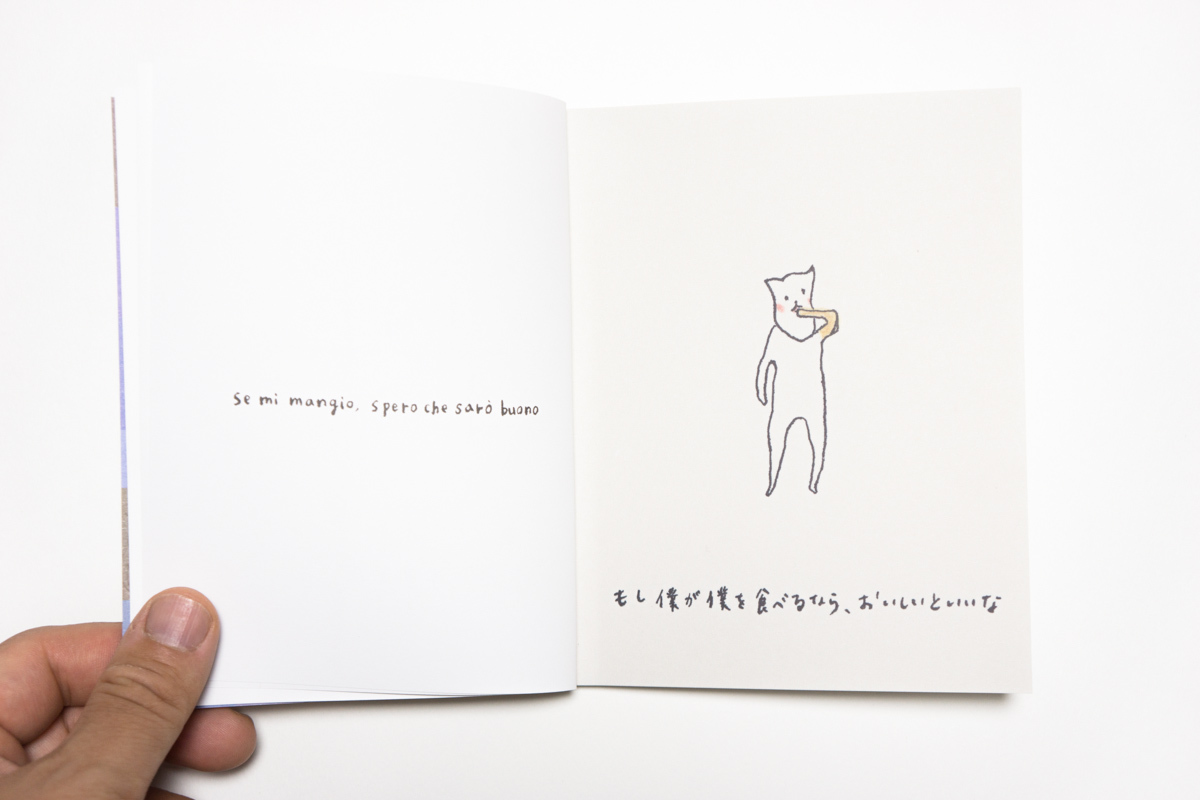 Se mi mangio, spero che sarò buono
もし僕が僕を食べるなら、おいしいといいな